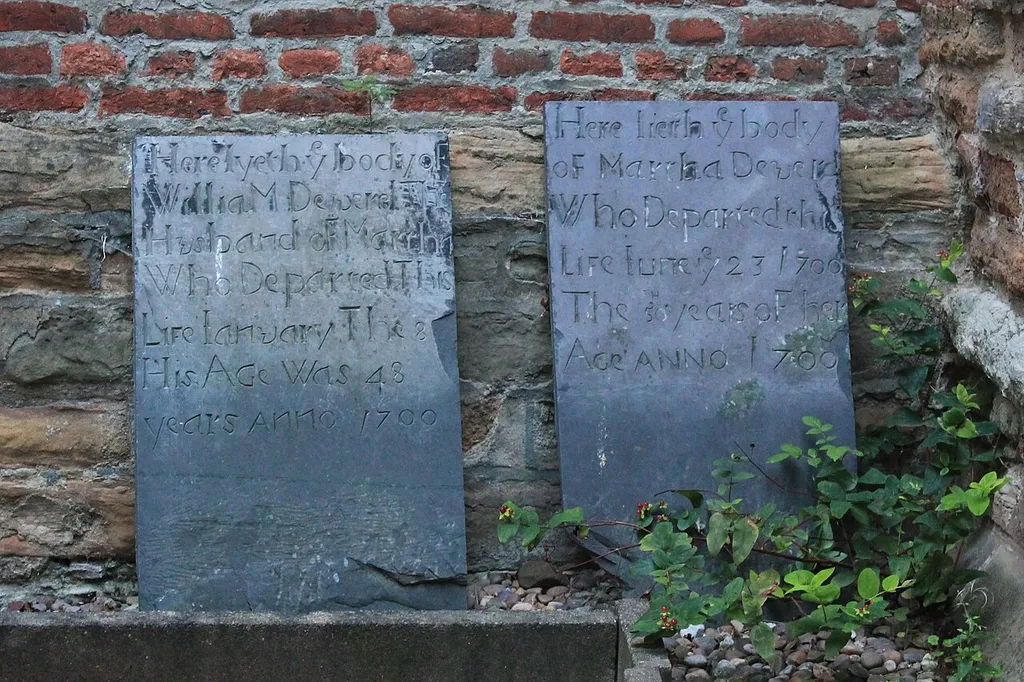 Here lyeth ẙ body of
WilliaM Dewerd The
Husband of Martha
Who Departed This
Life Ianuary The 8
His Age Was 48
years ANNO 1700
Here lieth ẙ body
oF Martha Dewer
Who Departed thi
Life Iune ẙ 23 1700
The years oF her
Age ANNO 1700